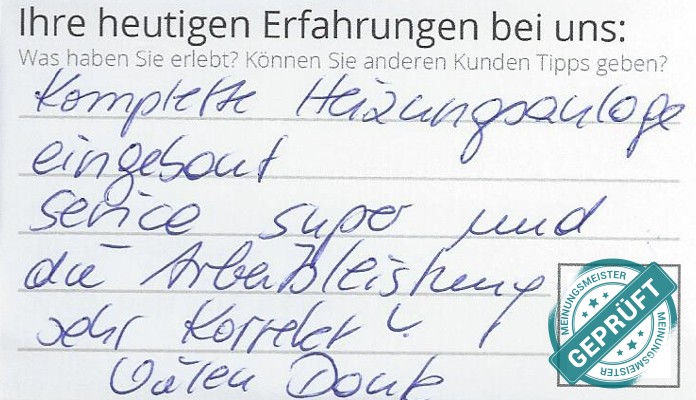 Ihre heutigen Erfahrungen bei uns:
Was haben Sie erlebt? Können Sie anderen Kunden Tipps geben?
Komplette Heizungsanlage
eingebaut
service super und
die Arbeitsleistung
sehr Korrekt
Vielen Dank
MEINUNGSMEISTER
GEPRÜFT
MEINUNGSMEISTER